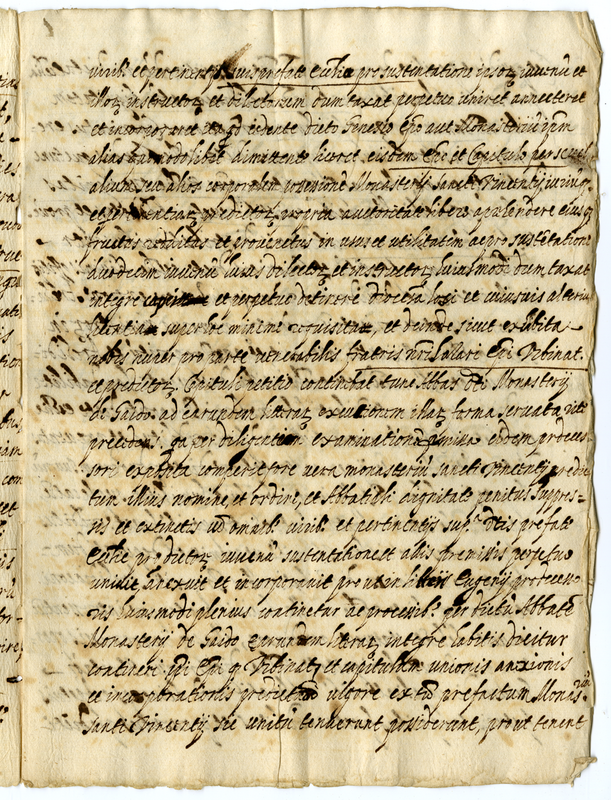 iuribus et pertinentijs suis prefate Ecclie pro sustentatione ipsoz iuvenu et
illoz instructoz et dilectarum dum taxat perpetuo uniret annecteret
et incorporaret itaqd cedente dicto Genesio Epo aut Monasteriu ipm
alias quomodolibet dimittente liceret eisdem Epo et Capitulo per se vel
alium seu alios corporalem possessione Monasterij Sancti Vincentij iuriuq.
et pertinentiaz predictoz propria auctoritate libere apprehendere eiusq.
fructus redditus et proventus in usus et utilitatem ac pro sustetatione
duodecim iuvenu huius dilectoz et instructoz huiusmodi dum taxat
integre et perpetuo retinere Diocesa loci et cuiusuis alterius
licentia super hoc minime requisita, et deinde sicut exhibita
nobis nuper pro parte venerabilis fratris nri Epi Urbinat.
ac predictoz Capituli petitio continebat tunc Abbas dti Monasterij
de Gaido ad earundem lraz executionem illaz forma servata rite
procedens, qa per diligentem examinationem eidem predeces
sori exposita comperit fore vera monasteriu sancti Vincentij predic
tum illius nomine, et ordine, et Abbatiali dignitate penitus suppres-
sis et extinctis cu omnib. iurib. et pertinentijs sup. dtis prefate
Ecclie pro dictoz iuvenu sustentatione et alijs premissis perpetuo
univit, anexuit et incorporavit prout in litteris Eugenij predeces
ris huiusmodi plenius continetur ac processib. per dictu Abbate
Monasterij de Gaido earundem lraz integre habitis dicitur
contineri ipi Epi q Urbinat. et capitulum unionis anexionis
ac incorporationis predictaru vigore ex tuc prefactum Monas-rium
sancti Vincentij sic unitu tenuerunt possiderunt, prout tenent